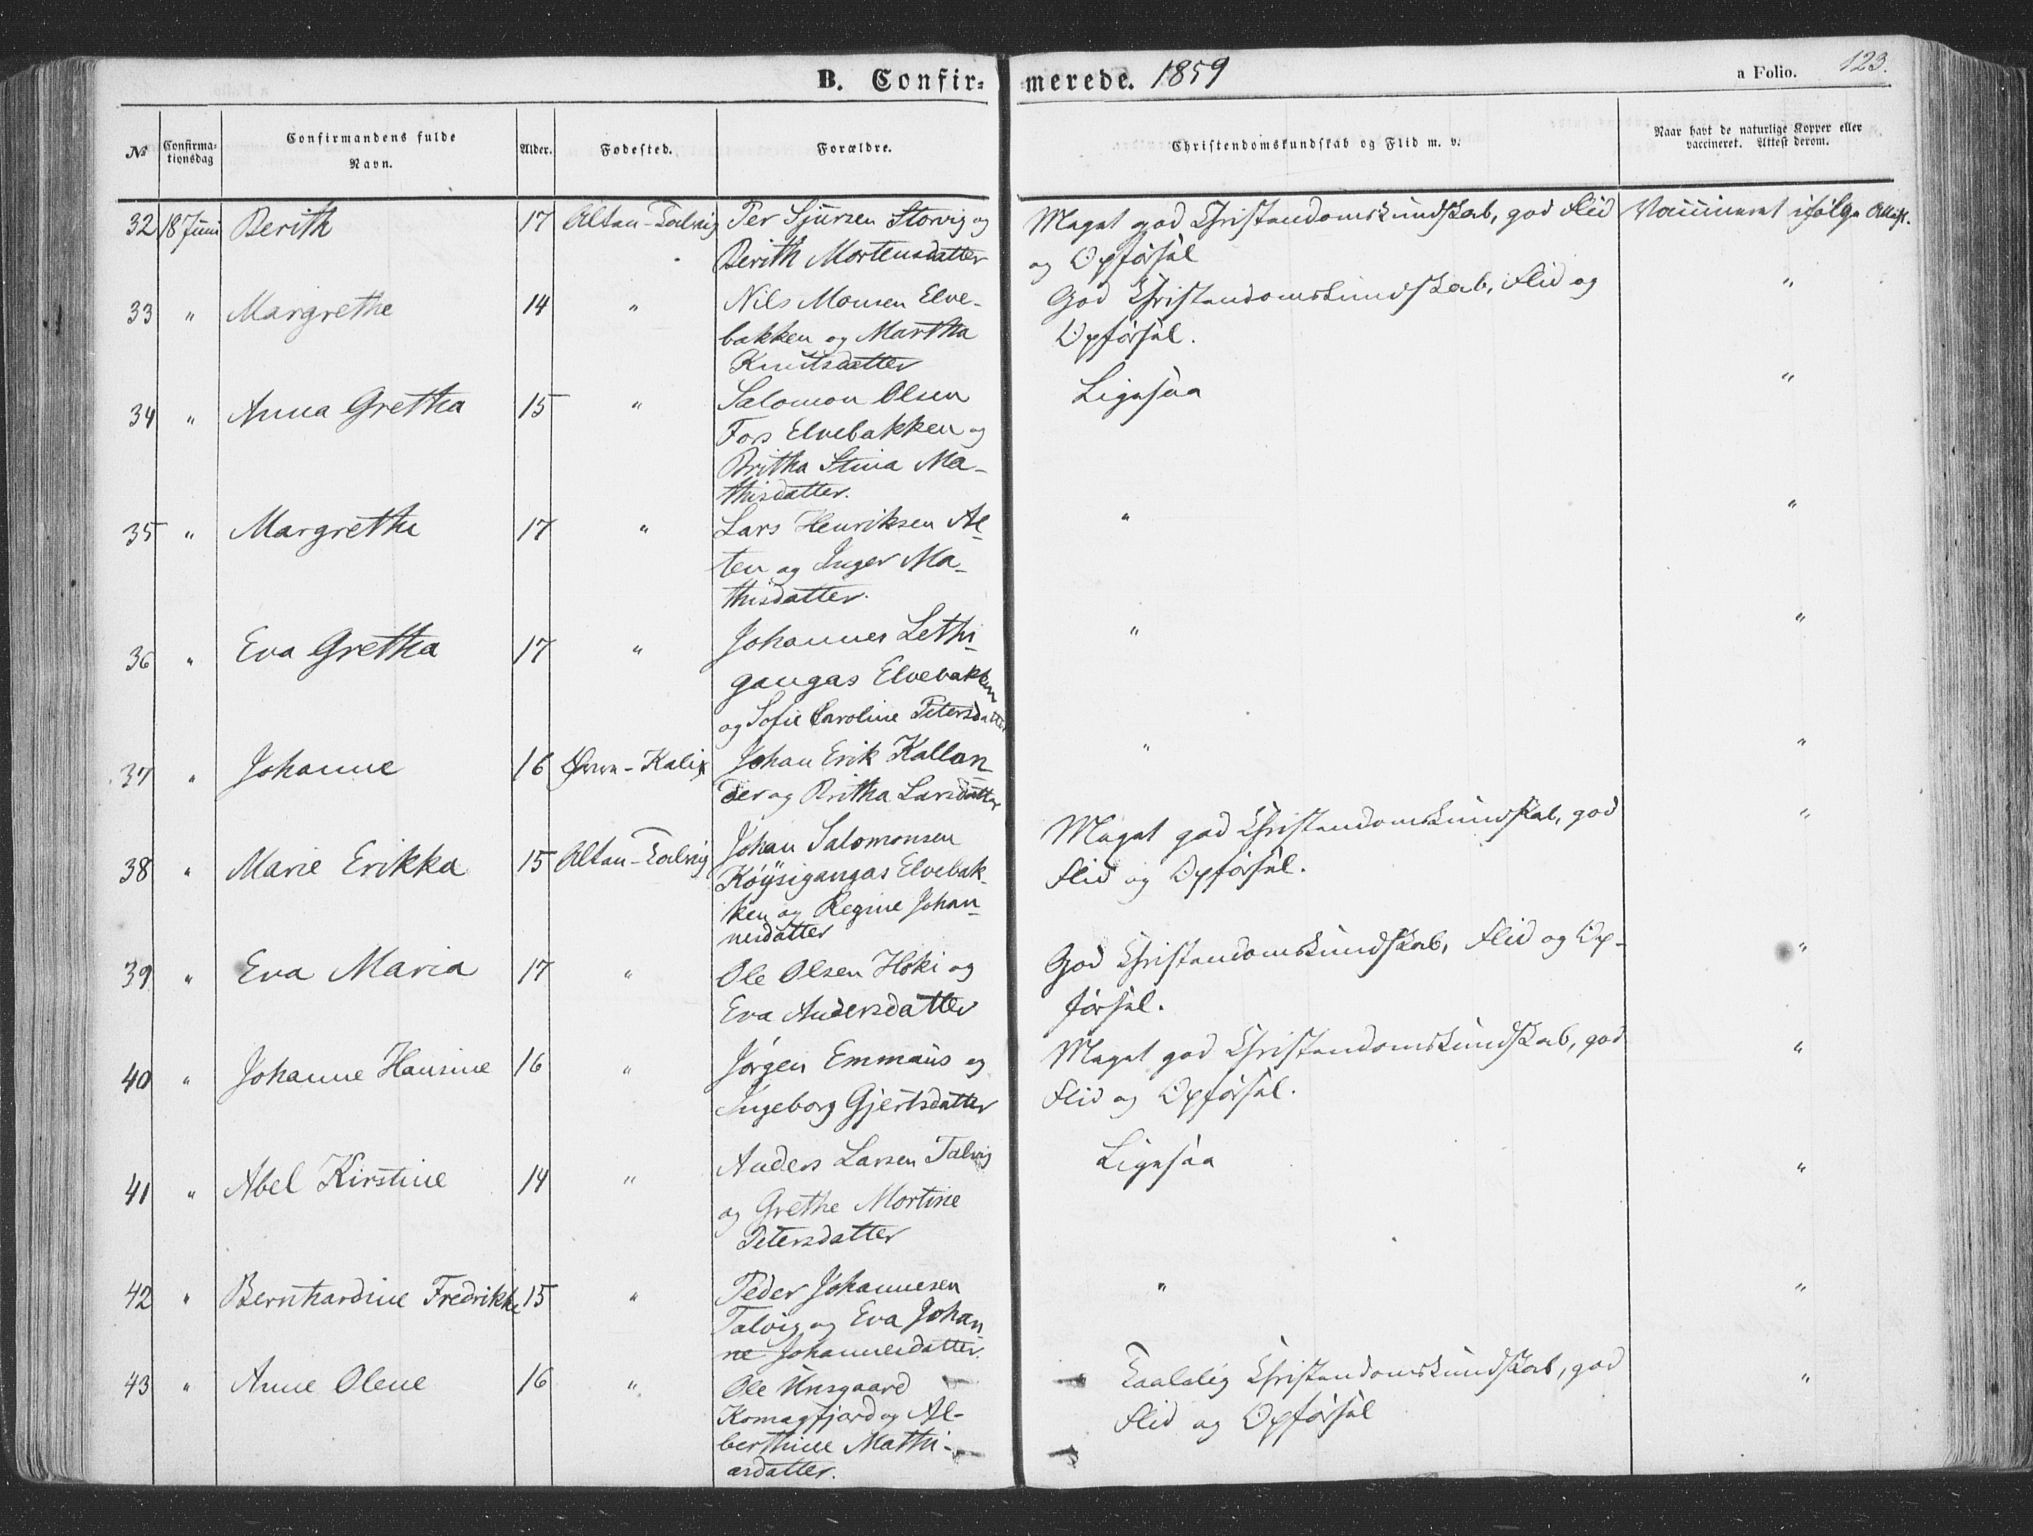 B. Confir-merede. 1859
a Folio. 123.
№ Confirmationsdag Confirmandens fulde Navn. Alder. Fødested. Forældre. Christendomskundskab og Flid m. v. Naar havt de naturlige Kopper eller vaccineret. Attest derom.
32 18 Juni Berith 17 Alten-Talvig Per Sjursen Storvig og Meget god Christendomskundskab, god Flid Vaccineret ifølge Attest.
Berith Mortensdatter og Opførsel
33 " Margrethe 14 " Nils Monsen Elve- God Christendomskundskab, Flid og "
bakken og Martha Opførsel.
Knutsdatter
34 " Anna Gretha 15 " Salomon Olsen Ligesaa "
Fors Elvebakken og
Britha Stina Ma-
thisdatter.
35 " Margrethe 17 " Lars Henriksen Al- " "
ten og Inger Ma-
thisdatter.
36 " Eva Gretha 17 " Johannes Lethi- " "
gangas Elvebakken
og Sofie Caroline Petersdatter
37 " Johanne 16 Øvre-Kalix Johan Erik Kallan- " "
der og Britha Larsdatter
38 " Marie Erikka 15 Alten-Talvig Johan Salomonsen Meget god Christendomskundskab, god "
Köysigangas Elvebak- Flid og Opførsel.
ken og Regine Johan-
nesdatter
39 " Eva Maria 17 " Ole Olsen Høki og God Christendomskundskab, Flid og Op- "
Eva Andersdatter førsel.
40 " Johanne Hansine 16 " Jørgen Emmaus og Meget god Christendomskundskab, god "
Ingeborg Gjertsdatter Flid og Opførsel.
41 " Abel Kirstine 14 " Anders Larsen Talvig Ligesaa "
og Grethe Mortine
Petersdatter
42 " Bernhardine Fredrikke 15 " Peder Johannesen " "
Talvig og Eva Johan
ne Johannesdatter.
43 " Anne Olene 16 " Ole Unsgaard Taalelig Christendomskundskab, god "
Komagfjord og Al- Flid og Opførsel
berthine Mathi-
asdatter.